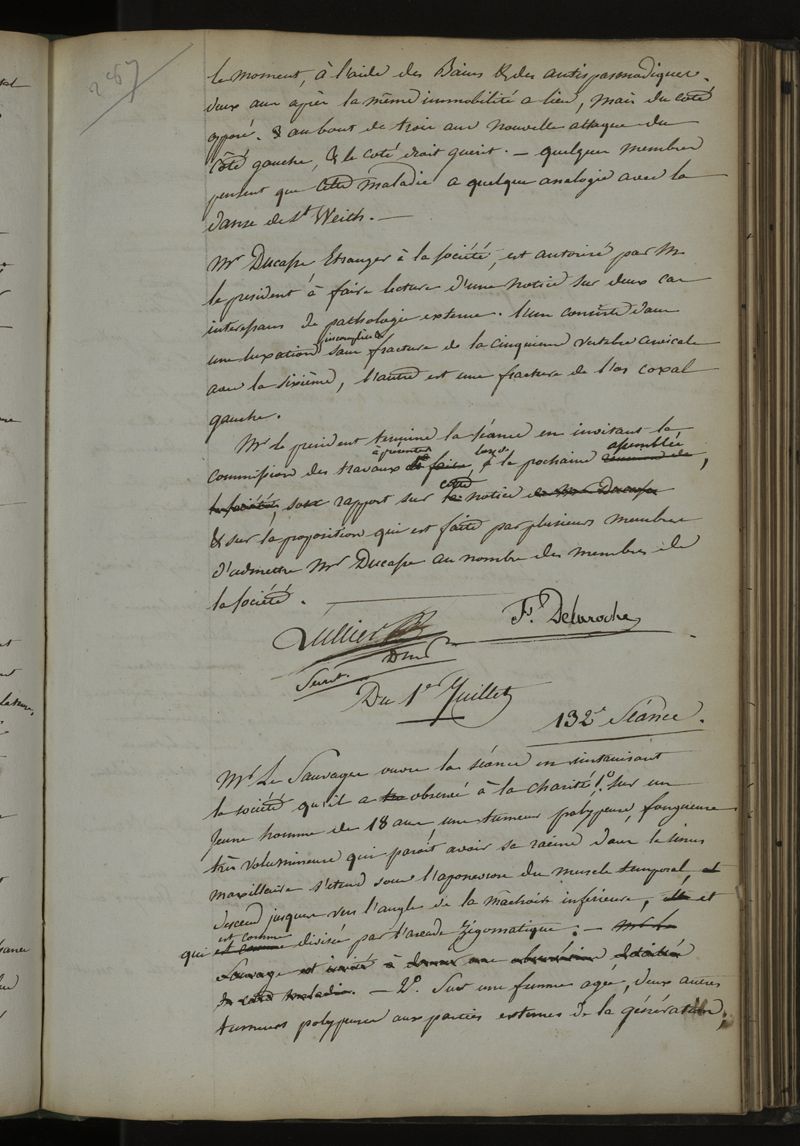 267
le moment, à l'aide des Bains & des antispasmodiques.
deux ans après la même immobilité a lieu, mais du coté
opposé. & au bout de trois ans nouvelle attaque du
Côté gauche, & le coté droit guérit. — quelques membres
pensent que cette maladie a quelque analogie avec la
danse de St Weith. —
Mr Ducasse Etranger à la société, est autorisé par Mr
le president à faire lecture d'une notice sur deux cas
interessans de pathologie externe. l'un consiste dans
une luxation incomplete sans fracture de la cinquieme vertebre cervicale
avec la sixième, l'autre est une fracture de l'os coxal
gauche.
Mr le president termine la séance en invitant la
Commission des travaux à présenter à la prochaine assemblée,
son rapport sur cette notice
& sur la proposition qui est faite par plusieurs membres
d'admettre Mr Ducasse au nombre des membres de
la société.
Lullier
F. Delaroche
Secret.
Du 1er Juillet
132e Séance.
Mr Le Sauvage ouvre la séance en instruisant
la société qu'il a observé à la charité, 1o sur un
jeune homme de 18 ans une tumeur polypeuse, fongueuse
très volumineuse qui parait avoir sa racine dans le sinus
maxillaire s'étend sous l'aponevrose du muscle temporal
descend jusques vers l'angle de la machoire inférieure, et
qui est comme divisée par l'arcade zigomatique. — Mr Le
Sauvage est invité à donner une observation détaillée
de cette maladie. — 2o Sur une femme agée, deux autres
tumeurs polypeuses aux parties externes de la génération,